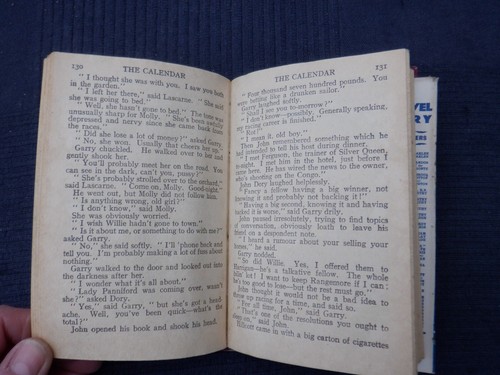 130
THE CALENDAR
" I thought she was with you. I saw you both
in the garden."
" I left her there," said Lascarne. " She said
she was going to bed."
" Well, she hasn't gone to bed." The tone was
unusually sharp for Molly. " She's been awfully
depressed and nervy since she came back from
the races."
" Did she lose a lot of money?" asked Garry.
" No, she won. Usually that cheers her up."
Garry chuckled. He walked over to her and
gently shook her.
" You'll probably meet her on the road. You
can see in the dark, can't you, pussy?"
" She's probably strolled over to the orchard,"
said Lascarne. " Come on, Molly. Good night."
He went out, but Molly did not follow him.
" Is anything wrong, old girl?"
" I don't know," said Molly.
She was obviously worried.
" I wish Willie hadn't gone to town."
" Is it about me, or something to do with me?"
asked Garry.
" No," she said softly. " I'll 'phone back and
tell you. I'm probably making a lot of fuss about
nothing."
Garry walked to the door and looked out into
the darkness after her.
" I wonder what it's all about."
" Lady Panniford was coming over, wasn't
she?" asked Dory.
" Yes," said Garry, " but she's got a head-
ache. Well, you've been quick—what's the
total?"
John opened his book and shook his head.
THE CALENDAR
131
" Four thousand seven hundred pounds. You
were betting like a drunken sailor."
Garry laughed softly.
" Shall I see you to-morrow?"
" I don't know—possibly. Generally speaking,
my racing career is finished."
" I mean it, old boy."
Then John remembered something which he
had intended to tell his host during dinner.
" I met Ferguson, the trainer of Silver Queen,
to-night. I met him in the hotel, just before I
came here. He has wired the news to the owner,
who's shooting on the Congo."
John Dory laughed helplessly.
" Fancy a fellow having a big winner, not
knowing it and probably not backing it!"
" Having a big second, knowing it and having
backed it is worse," said Garry drily.
John paused irresolutely, trying to find topics
of conversation, obviously loath to leave his
friend on a despondent note.
" I heard a rumour about your selling your
horses," he said.
Garry nodded.
" So did Willie. Yes, I offered them to
he's a talkative fellow. The whole
lot! I want to keep Rangemore if I can:
he's too good to lose—but the rest must go."
John thought it would not be a bad idea to
give up racing for a time, and said so.
" For all time, John," said Garry.
" That's one of the resolutions you ought to
sleep on," said John.
Hillcott came in with a big carton of cigarettes